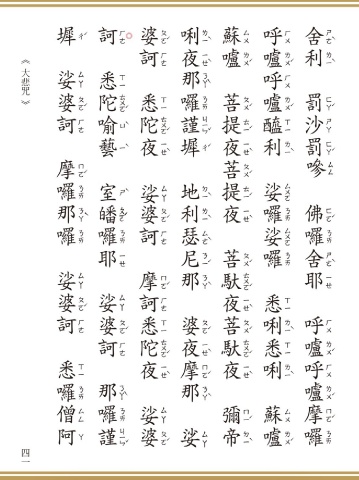 舍利 罰沙罰嘇 佛囉舍耶 呼嚧呼嚧摩囉
呼嚧呼嚧醯利 娑囉娑囉 悉唎悉唎 蘇嚧
蘇嚧 菩提夜菩提夜 菩馱夜菩馱夜 彌帝
唎夜 那囉謹墀 地利瑟尼那 婆夜摩那 娑
婆訶 悉陀夜 娑婆訶 摩訶悉陀夜 娑婆
訶 悉陀喻藝 室皤囉耶 娑婆訶 那囉謹
墀 娑婆訶 摩囉那囉 娑婆訶 悉囉僧阿
《大悲咒》
四一